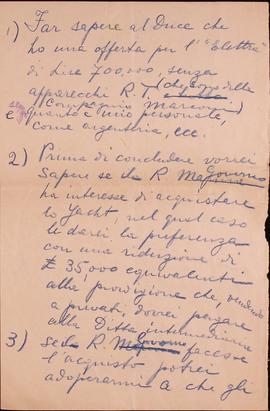 1) Far sapere al Duce che
ho una offerta per l'"Elettra"
di Lire 700.000, senza
apparecchi R.T. (che sono della
Compagnia Marconi)
e quanto è mio personale,
come argenteria, ecc.
2) Prima di concludere vorrei
sapere se il R. Governo
ha interesse di acquistare
lo Yacht, nel qual caso
le darei la preferenza
con una riduzione di
£ 35.000 equivalenti
alla provvigione che, vendendo
a privati, dovrei pagare
alla Ditta intermediaria
3) se il R. Governo facesse
l'acquisto potrei
adoperarmi a che gli